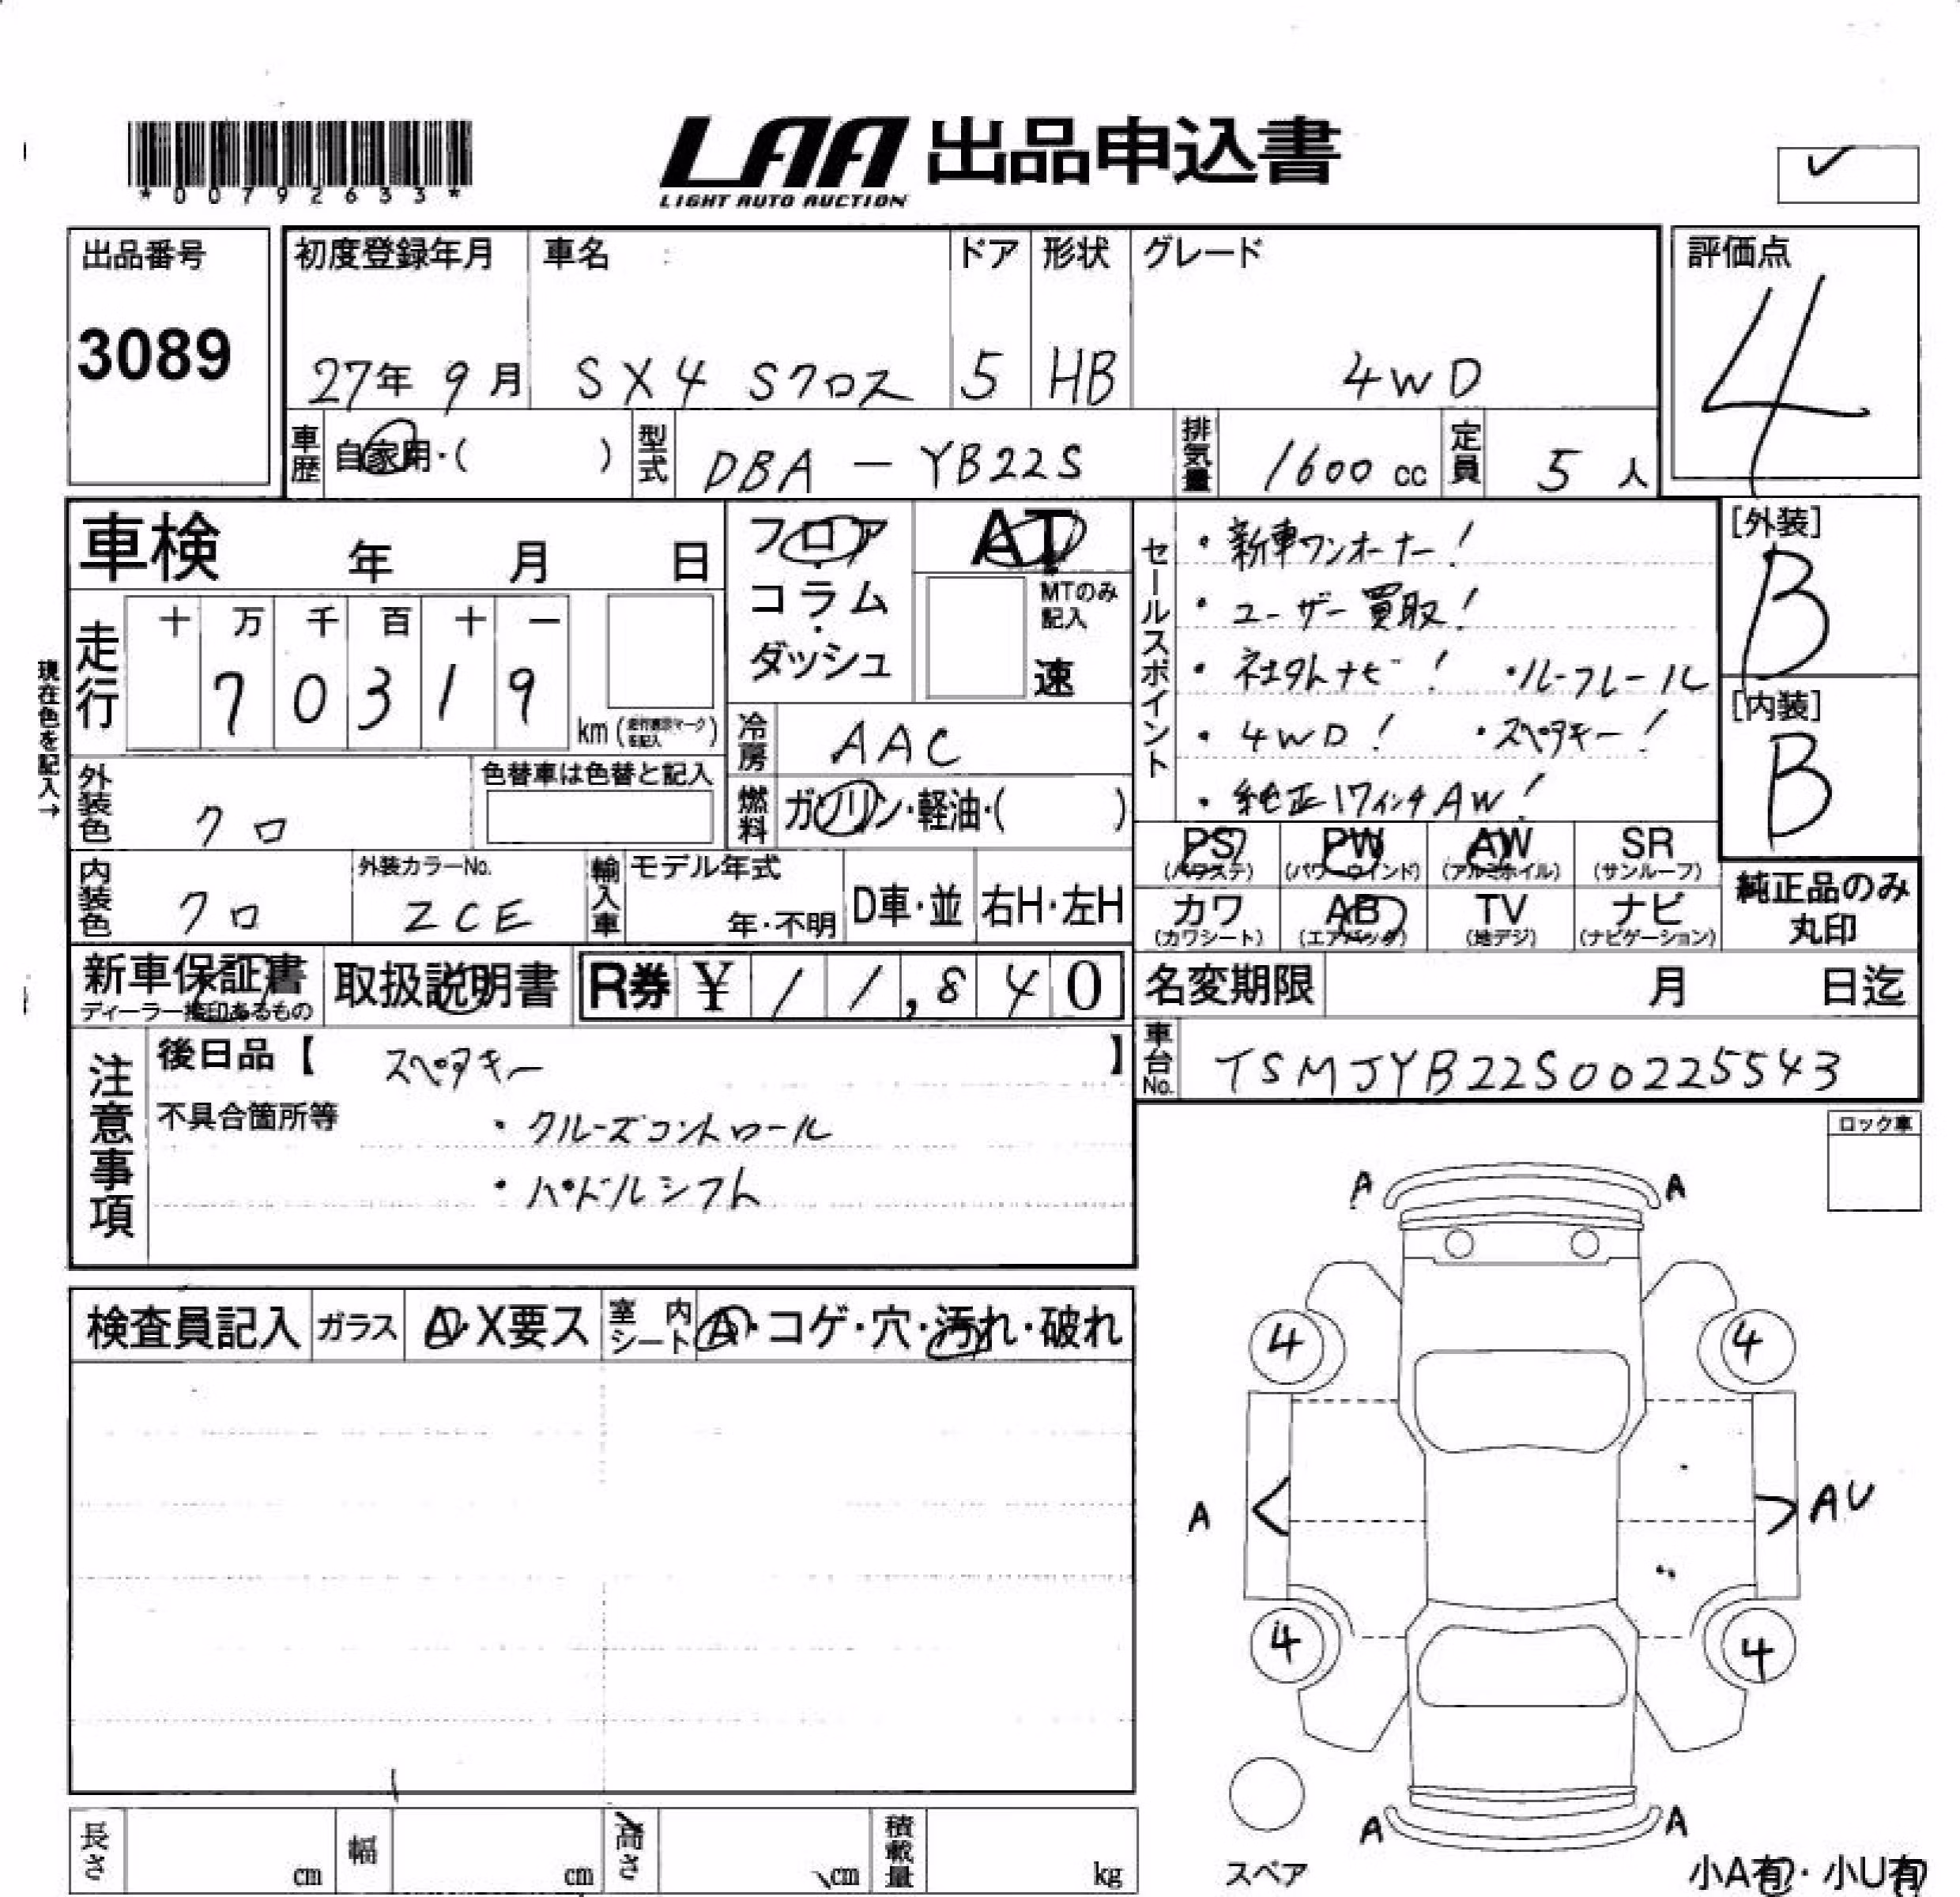 *00792633*
LAA 出品申込書
LIGHT AUTO AUCTION
✓
出品番号
3089
初度登録年月
27年 9月
車名
SX4 Sクロス
ドア
5
形状
HB
グレード
4WD
評価点
4
車歴
自家用・( )
型式
DBA - YB22S
排気量
1600 cc
定員
5 人
車検 年 月 日
走行
十 万 千 百 十 一
7 0 3 1 9
km (走行表示マーク記入)
現在色を記入→
フロア
・
コラム
・
ダッシュ
AT
MTのみ
記入
速
冷房
AAC
燃料
ガソリン・軽油・( )
セールスポイント
・新車ワンオーナー!
・ユーザー買取!
・社外ナビ! ・ルーフレール
・4WD! ・スペアキー!
・純正17インチAW!
[外装]
B
[内装]
B
外装色
クロ
色替車は色替と記入
内装色
クロ
外装カラーNo.
ZCE
輸入車
モデル年式
年・不明
D車・並
右H・左H
PS
(パワステ)
PW
(パワーウインド)
AW
(アルミホイル)
SR
(サンルーフ)
カワ
(カワシート)
AB
(エアバッグ)
TV
(地デジ)
ナビ
(ナビゲーション)
純正品のみ
丸印
新車保証書
ディーラー捺印あるもの
取扱説明書
R券 ¥ 11,840
名変期限 月 日迄
車台No.
TSMJYB22S00225543
注意事項
後日品【 スペアキー 】
不具合箇所等
・クルーズコントロール
・パドルシフト
ロック車
検査員記入
ガラス
A・X要ス
室内シート
A・コゲ・穴・汚れ・破れ
A A
4 4
A AU
4 4
A A
スペア
小A有・小U有
長さ cm
幅 cm
高さ cm
積載量 kg